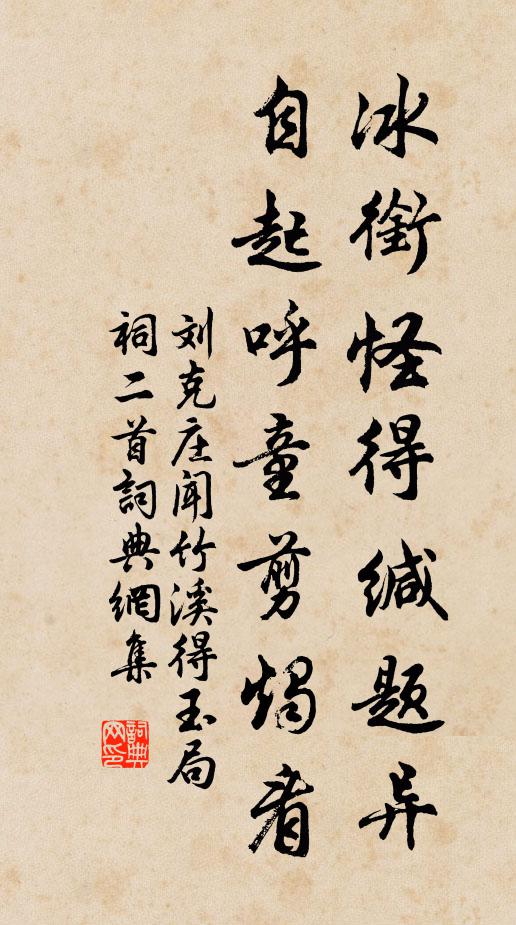 冰銜怪得緘题异
自起呼童剪燭看
刘克庄闻竹溪得玉局
祠二首詞典網集
詞典网印